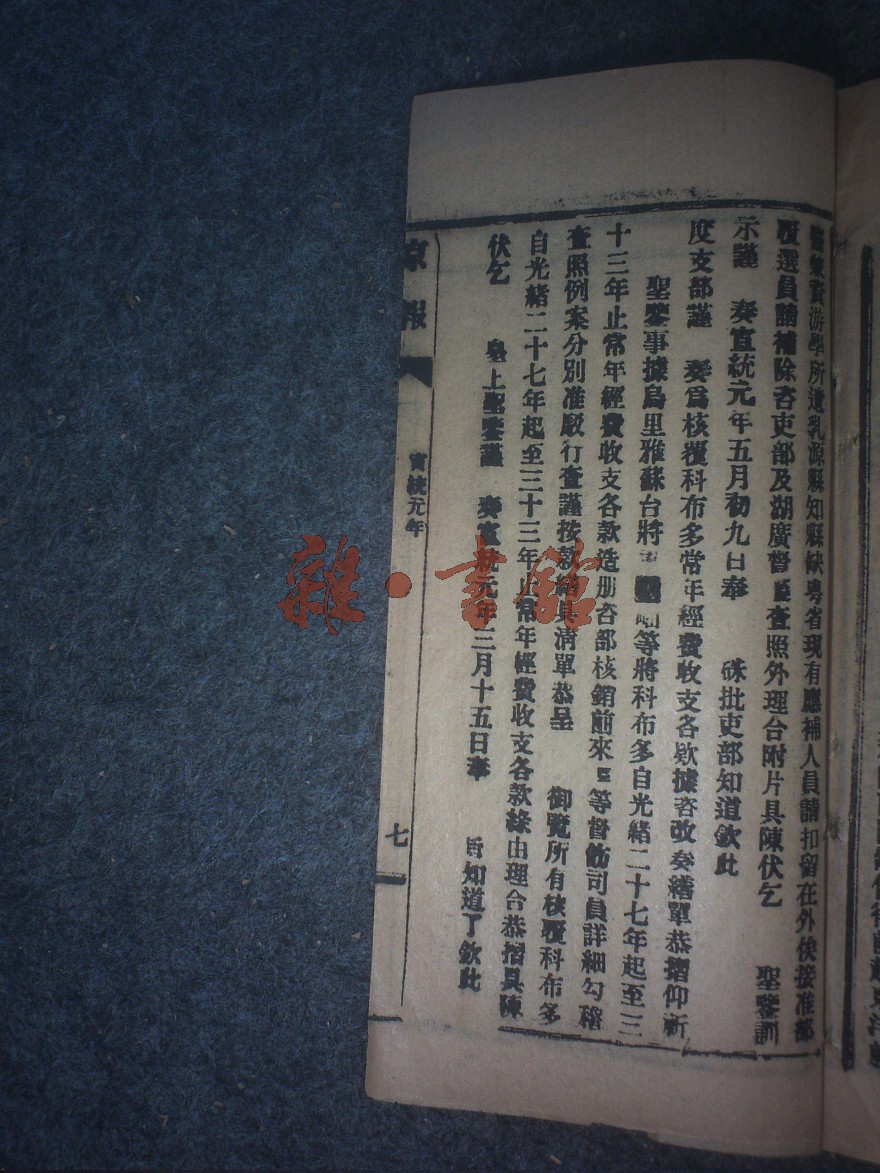 費游學所遺乳源縣知縣缺粵省現有應補人員請扣留在外俟接准部
覆選員請補除咨吏部及湖廣督查照外理合附片具陳伏乞 聖鑒訓
示謹 奏宣統元年五月初九日奉 硃批吏部知道欽此
度支部謹 奏爲核覆科布多常年經費收支各欵據咨改奏繕單恭摺仰祈
聖鑒事據烏里雅蘇台將等將科布多自光緒二十七年起至三
十三年止常年經費收支各款造册咨部核銷前來臣等督飭司員詳細勾稽
查照例案分別准駁行查謹按款繕具清單恭呈 御覽所有核覆科布多
自光緒二十七年起至三十三年止常年經費收支各款緣由理合恭摺具陳
伏乞 皇上聖鑒謹 奏宣統元年三月十五日奉 旨知道了欽此
京報
宣統元年
七
雜·書館